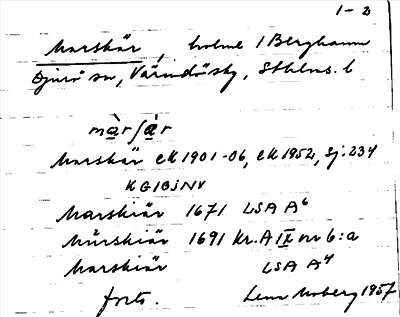 1-2
Marskär, holme i Berghamn
Djurö sn, Värmdö skg, Sthlms. l
màrʃàr
Marskär EK 1901-06, EK 1952, Sj: 234
KGIBiNV
Marskiär 1671 LSA A⁶
Mårskiär 1691 Kr. A IX nr 6:a
Marskiär LSA A⁴
forts. Lena Moberg 1957